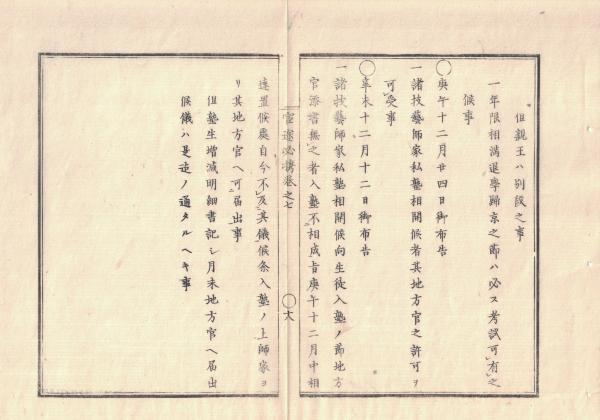 但親王ハ別段之事
一年限相満退学歸京之節ハ必ス考試可有之
候事
○庚午十二月廿四日御布告
一諸技藝師家私塾相開候者其地方官之許可ヲ
可受事
○辛未十二月十二日御布告
一諸技藝師家私塾相開候向生徒入塾ノ節地方
官添書無之者入塾不相成旨庚午十二月中相
官途必携巻之七
○六
達置候處自今不及其儀候条入塾ノ上師家ヨ
リ其地方官ヘ可届出事
但塾生増減明細書記シ月末地方官ヘ届出
候儀ハ是迄ノ通タルヘキ事